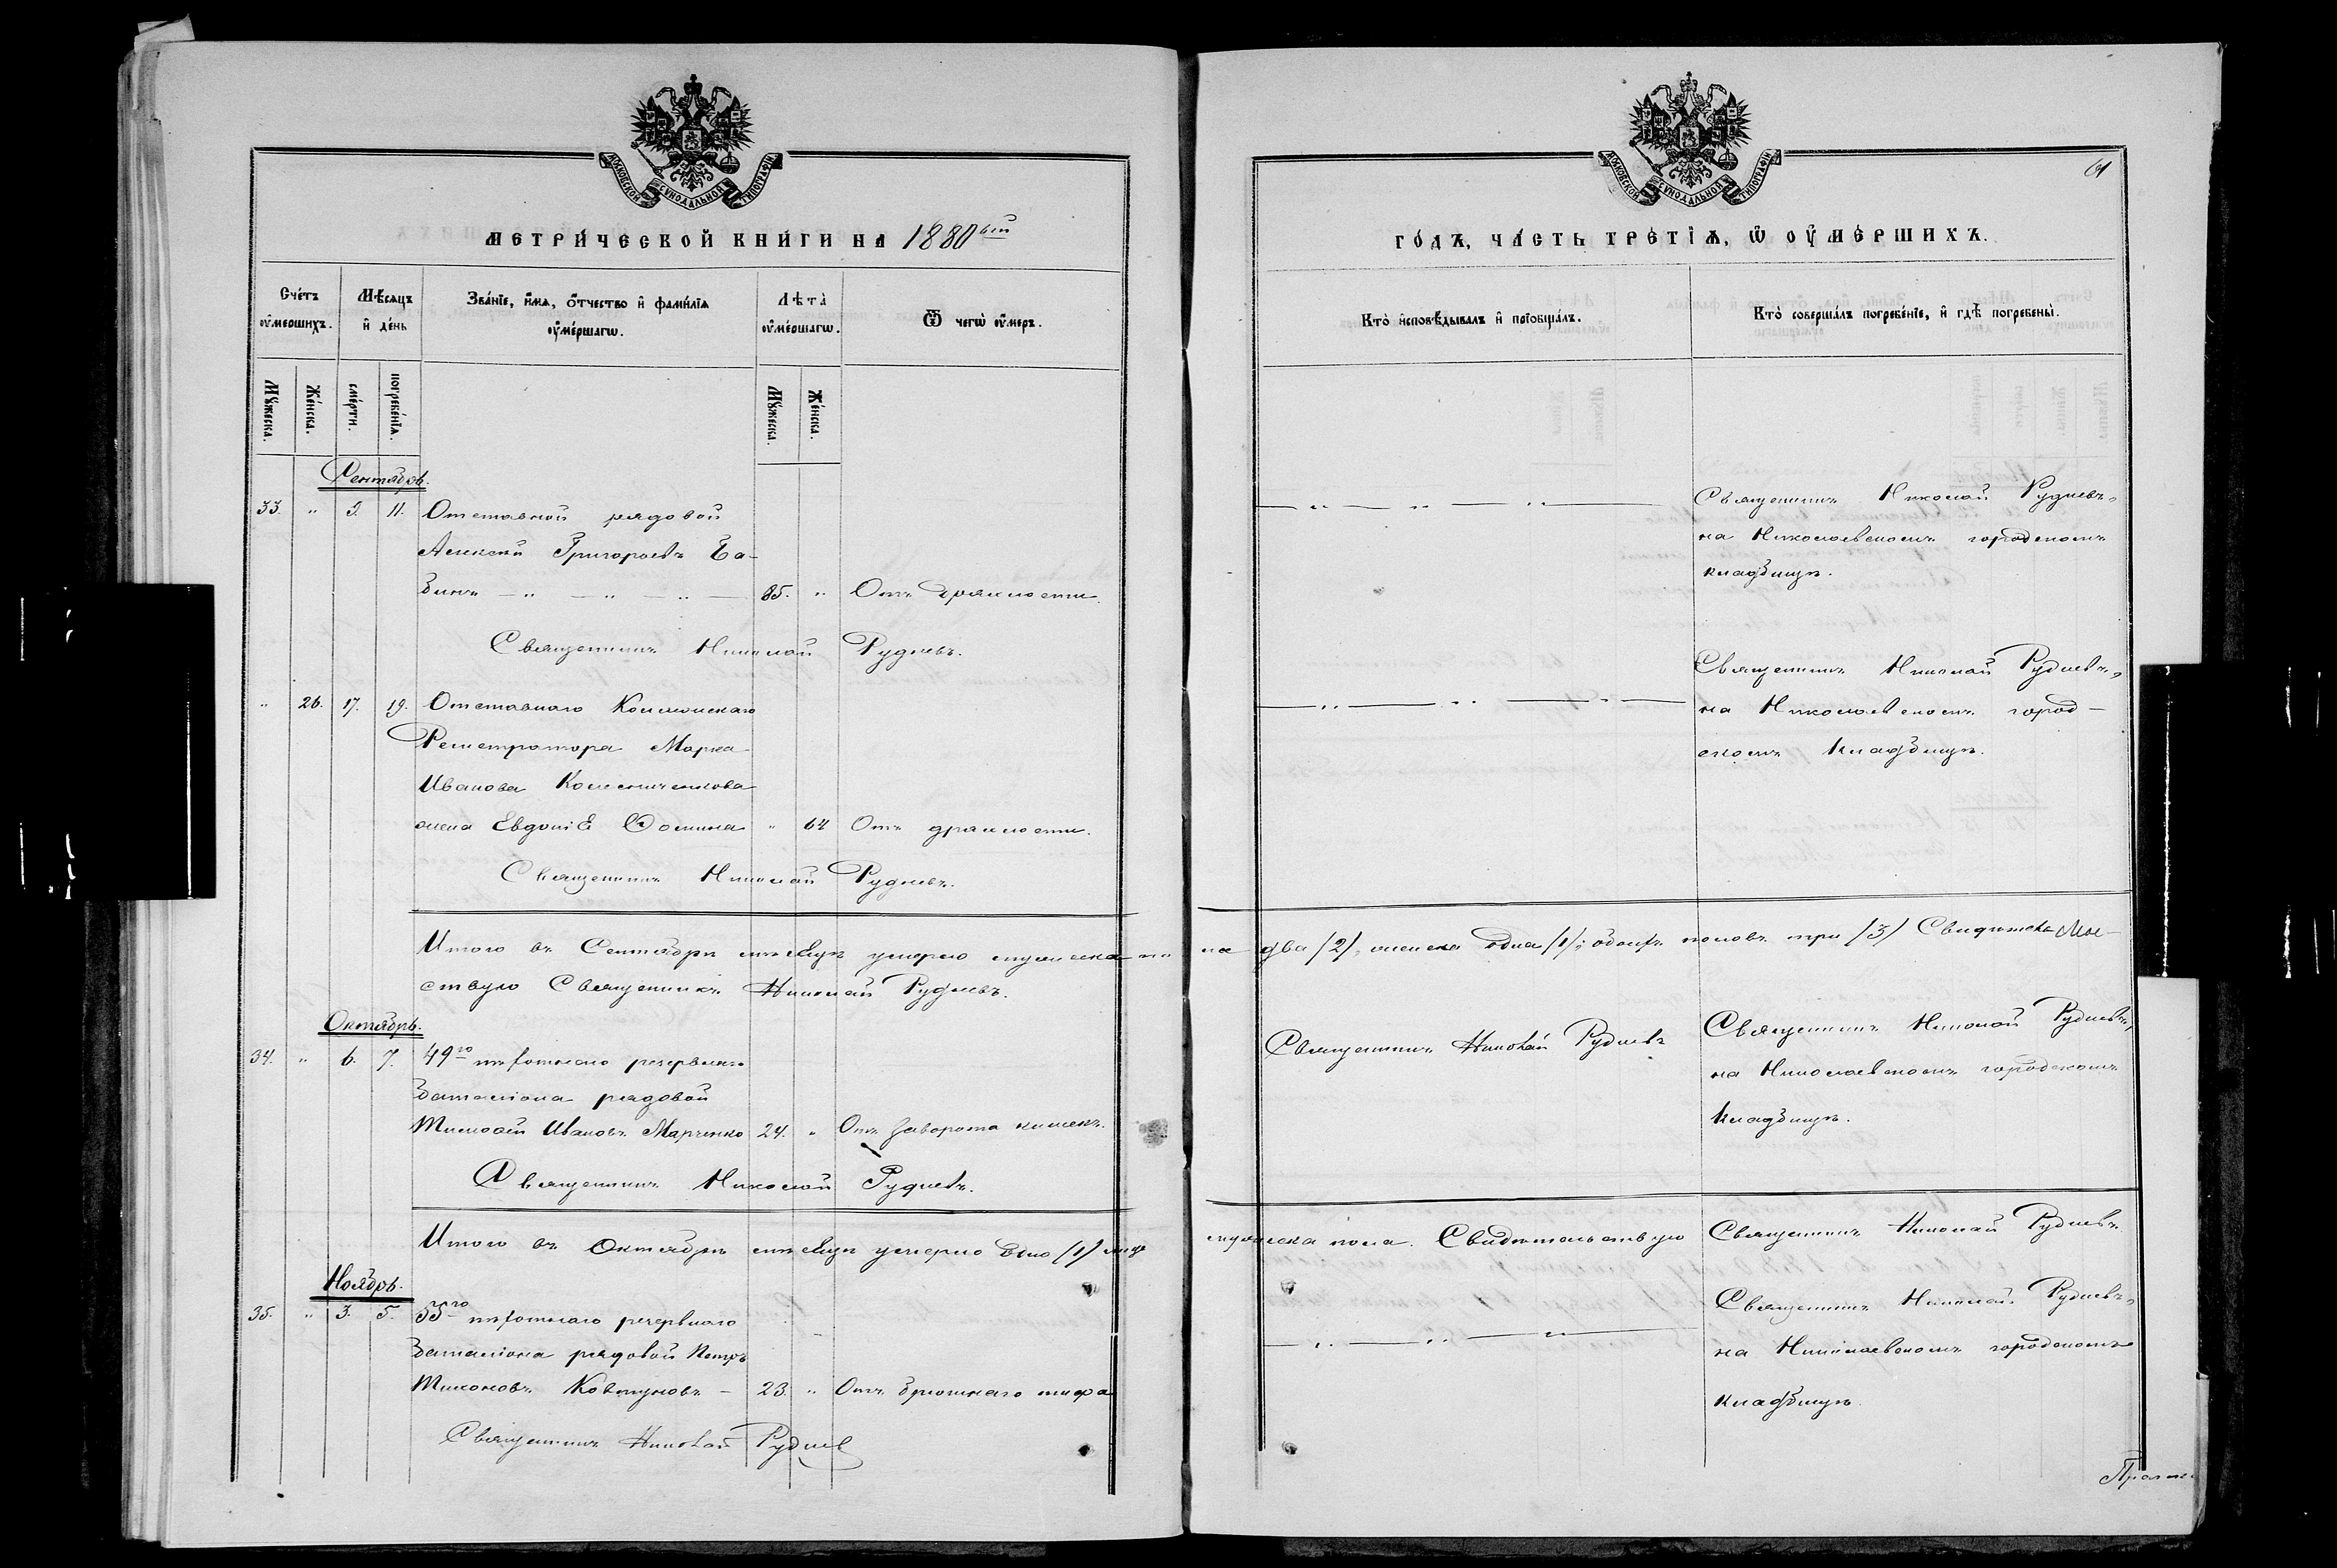 МОСКОВСКОЙ СѴНОДАЛЬНОЙ ТИПОГРАФІИ
МЕТРИ́ЧЕСКОЙ КНИ́ГИ НА 1880ый
Сче́тъ оу҆ме́ршихъ.
Мѣ́сяцъ и҆ де́нь
Зва́нїе, и҆́мѧ, ѻ҆́тчество и҆ фами́лїѧ оу҆ме́ршагѡ.
Лѣ́та оу҆ме́ршагѡ.
Ѿ чегѡ̀ оу҆́меръ.
Мꙋ́жеска.
Же́нска.
сме́рти.
погребе́нїѧ.
Мꙋ́жеска.
Же́нска.
Сентябрь.
33. " 9. 11. Отставной рядовой
Алексѣй Григорьевъ Ба-
бинъ — " — " — " — 85. " Отъ дряхлости.
Священникъ Николай Рудневъ.
" 26. 17. 19. Отставнаго Коллежскаго
Регистратора Марка
Иванова Колесниченкова
жена Евдокія Фомина " 64 Отъ дряхлости.
Священникъ Николай Рудневъ.
Итого въ Сентябрѣ мѣсяцѣ умерло мужеска по
ствую Священникъ Николай Рудневъ.
Октябрь.
34. " 6. 7. 49го пѣхотнаго резервнаго
баталіона рядовой
Тимофѣй Ивановъ Марченко 24. " Отъ заворота кишекъ.
Священникъ Николай Рудневъ.
Итого въ Октябрѣ мѣсяцѣ умерло одно (1) лице
Ноябрь.
35. " 3. 5. 55го пѣхотнаго резервнаго
баталіона рядовой Петръ
Тихоновъ Ковтуновъ — 23. " Отъ брюшнаго тифа
Священникъ Николай Руднев
МОСКОВСКОЙ СѴНОДАЛЬНОЙ ТИПОГРАФІИ
61
ГО́ДЪ, ЧА́СТЬ ТРЕ́ТЇѦ, Ѡ҆ ОУ҆МЕ́РШИХЪ.
Кто̀ и҆сповѣ́дывалъ и҆ прїобща́лъ.
Кто̀ соверша́лъ погребе́нїе, и҆ гдѣ̀ погребены̀.
— " — " — " — Священникъ Николай Рудневъ,
на Николаевскомъ городскомъ
кладбищѣ.
Священникъ Николай Рудневъ,
— " — " — " — на Николаевскомъ город-
скомъ кладбищѣ.
ла два (2), женска одна (1); обоихъ половъ три (3) Свидѣтель-
Священникъ Николай Рудневъ
Священникъ Николай Рудневъ,
на Николаевскомъ городскомъ
кладбищѣ.
мужеска пола. Свидѣтельствую Священникъ Николай Рудневъ.
Священникъ Николай Рудневъ,
— " — " — " — на Николаевскомъ городскомъ
кладбищѣ.